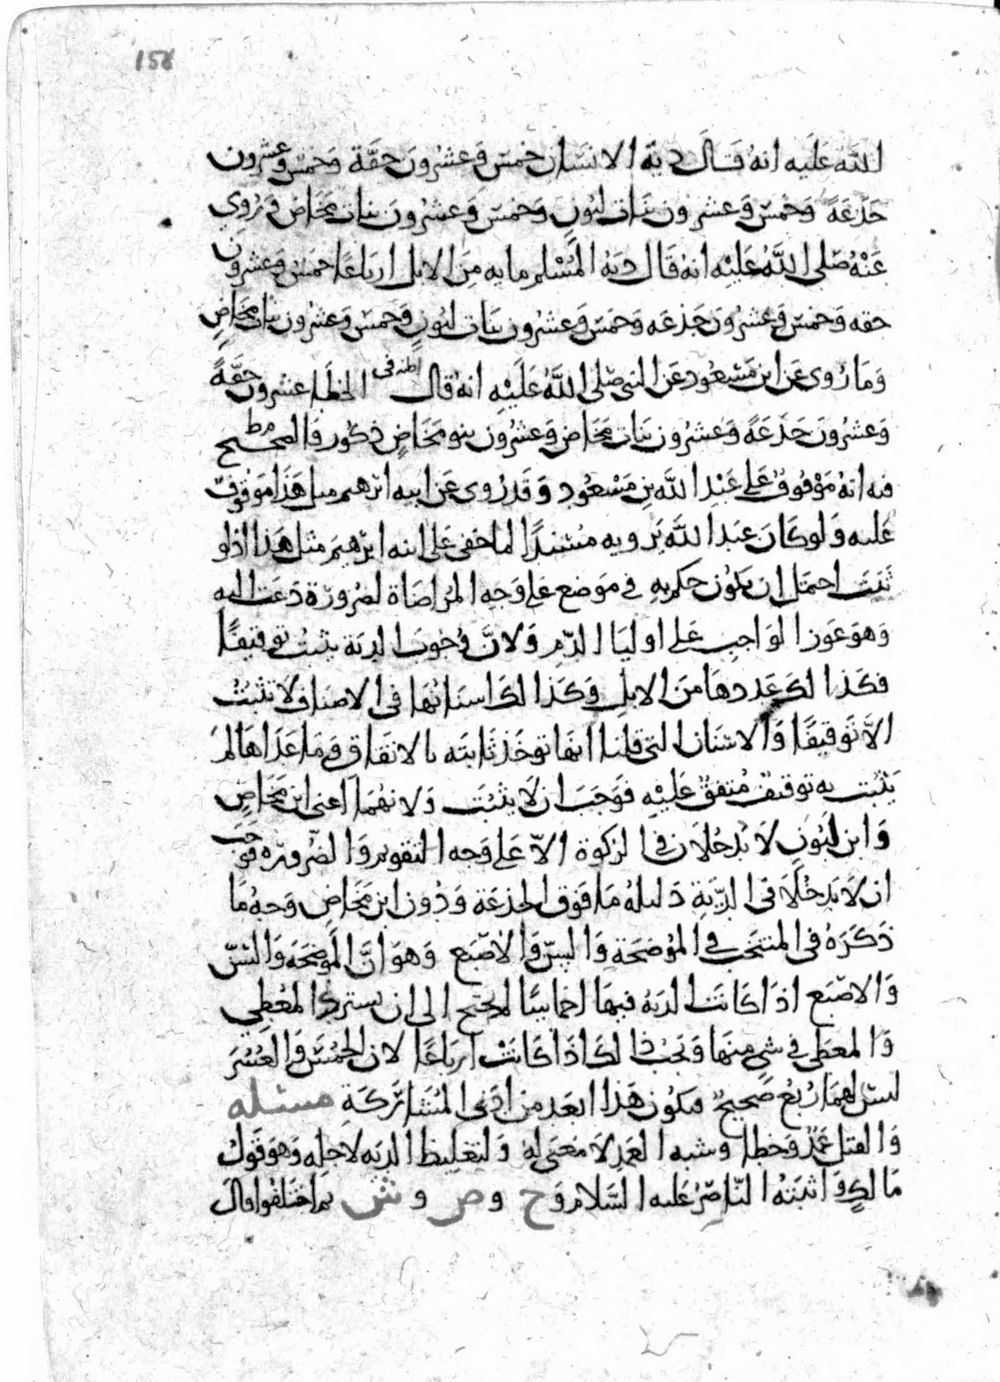 158
الله عليه انه قال دية الانسان خمس وعشرون حقة وخمس وعشرون
جذعة وخمس وعشرون بنات لبون وخمس وعشرون بنات مخاض وروي
عنه صلى الله عليه انه قال دية المسلم مايه من الابل ارباعا خمس وعشرون
حقه وخمس وعشرون جذعه وخمس وعشرون بنات لبون وخمس وعشرون بنات مخاض
وما روي عن ابن مسعود عن النبي صلى الله عليه انه قال في الخطا عشرون حقة
وعشرون جذعة وعشرون بنات مخاض وعشرون بنو مخاض ذكور والصحيح
فيه انه موقوف على عبد الله بن مسعود وقد روى عن ابيه ابرهيم مثل هذا موقوف
عليه ولو كان عبد الله يرويه مسندا لما خفى على ابنه ابرهيم مثل هذا اذ لو
ثبت احتمل ان يكون حكم به في موضع على وجه المراضاة لضرورة دعت اليه
وهو عوز الواجب على اوليا الدم ولان وجوب الدية يثبت توقيفا
فكذا لك عددها من الابل وكذا لك اسنانها في الاصناف لا تثبت
الا توقيفا والاسنان التي قلنا انها توخذ ثابته بالاتفاق وما عداها لم
يثبت به توقيف متفق عليه فوجب ان لا يثبت ولانهما اعنى ابن مخاض
وابن لبون لا يدخلان في الزكوة الا على وجه التقويم والضروره فوجب
ان لا يدخلا في الدية دليله ما فوق الجذعة ودون ابن مخاض وجه ما
ذكره في المنتخب في الموضحة والسن والاصبع وهو ان الموضحه والسن
والاصبع اذا كانت الديه فيها اخماسا لم يحتج الى ان يسترد المعطي
والمعطى في شي منها وتجب ذا لك اذا كانت ارباعا لان الخمس والعشر
ليس لهما ربع صحيح فيكون هذا ابعد من اذى المشاركة مسئله
والقتل عمد وخطا وشبه العمد لا معنى له ولتغليظ الديه لاجله وهو قول
مالك واثبته الناصر عليه السلام وح و ص و ش ثم اختلفوا وقال